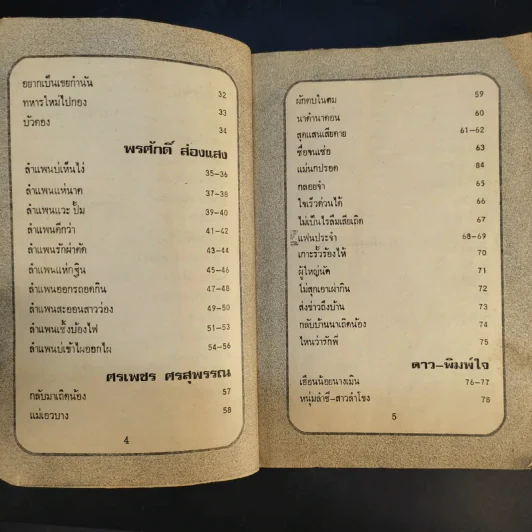 อยากเป็นเขยกำนัน 32
ทหารใหม่ไปกอง 33
บัวตอง 34
พรศักดิ์ ส่องแสง
ลำแพนบ่เห็นโง่ 35-36
ลำแพนแห่นาค 37-38
ลำแพนแวะ ปั๊ม 39-40
ลำแพนดีกว่า 41-42
ลำแพนรักผ่าตัด 43-44
ลำแพนแห่กฐิน 45-46
ลำแพนออกรถถอดกิน 47-48
ลำแพนสะออนสาวว่อง 49-50
ลำแพนเซิ้งบ้องไฟ 51-53
ลำแพนบ่เข้าไผออกไผ 54-56
ศรเพชร ศรสุพรรณ
กลับมาเถิดน้อง 57
แม่เอวบาง 58
4
ผักตบในตม 59
นาดำนาดอน 60
สุดแสนเสียดาย 61-62
ซื่อจนเซ่อ 63
แม่นกปรอด 84
กลอยจำ 65
ใจเร็วด่วนได้ 66
ไม่เป็นไรลืมเสียเถิด 67
แฟนประจำ 68-69
เกาะรั้วร้องไห้ 70
ผู้ใหญ่นัด 71
ไม่สุกเอาเผากิน 72
ส่งข่าวถึงบ้าน 73
กลับบ้านนาเถิดน้อง 74
ไหนว่ารักพี่ 75
ดาว-พิมพ์ใจ
เฮือนน้อยนางเมิน 76-77
หนุ่มลำซี-สาวลำโขง 78
5